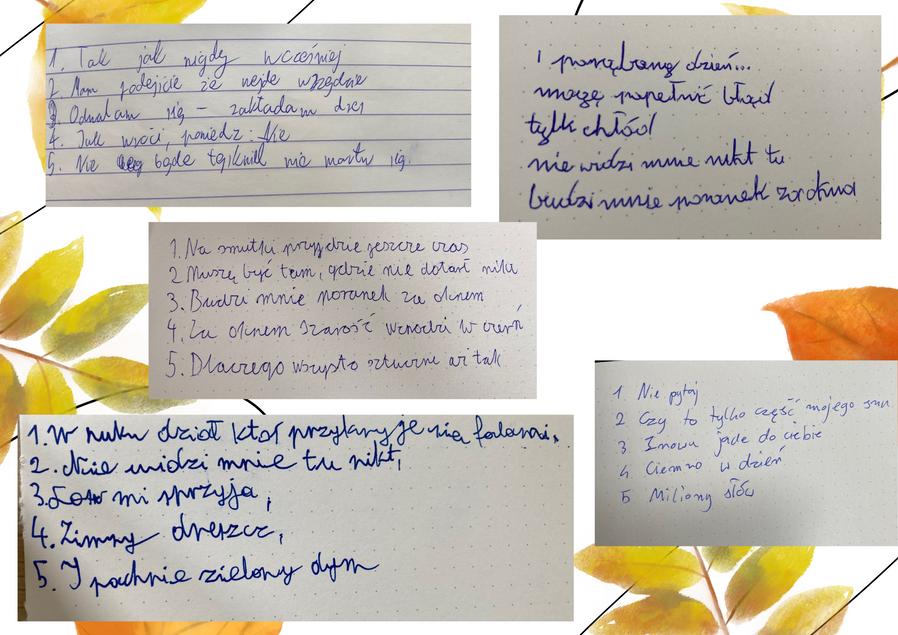 1. Tak jak nigdy wcześniej
2. Mam podejście że nejde wszędzie
3. Odmalam się – zakładam dres
4. Jak wróci, powiedz: Nie
5. Nie będę tęsknił nie martw się.
i porąbany dzień...
mogę popełnić błąd
tylk chłód
nie widzi mnie nikt tu
budzi mnie poranek za oknem
1. Na smutki przyjdzie jeszcze czas
2 Muszę być tam, gdzie nie dotarł nikt
3. Budzi mnie poranek za oknem
4. Za oknem szarość wchodzi w cień
5. Dlaczego wszysto sztuczne aż tak
1. W ruku dział ktoś przykryje nia falami,
2. Nie widzi mnie tu nikt,
3. Los mi sprzyja,
4. Zimny dreszcz,
5. I pachnie zielony dym
1 Nie pytaj
2 Czy to tylko część mojego snu
3 Znowu jade do ciebie
4 Ciemno w dzień
5 Miliony słów